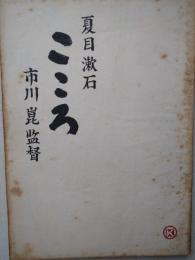 夏目漱石
こころ
市川崑監督